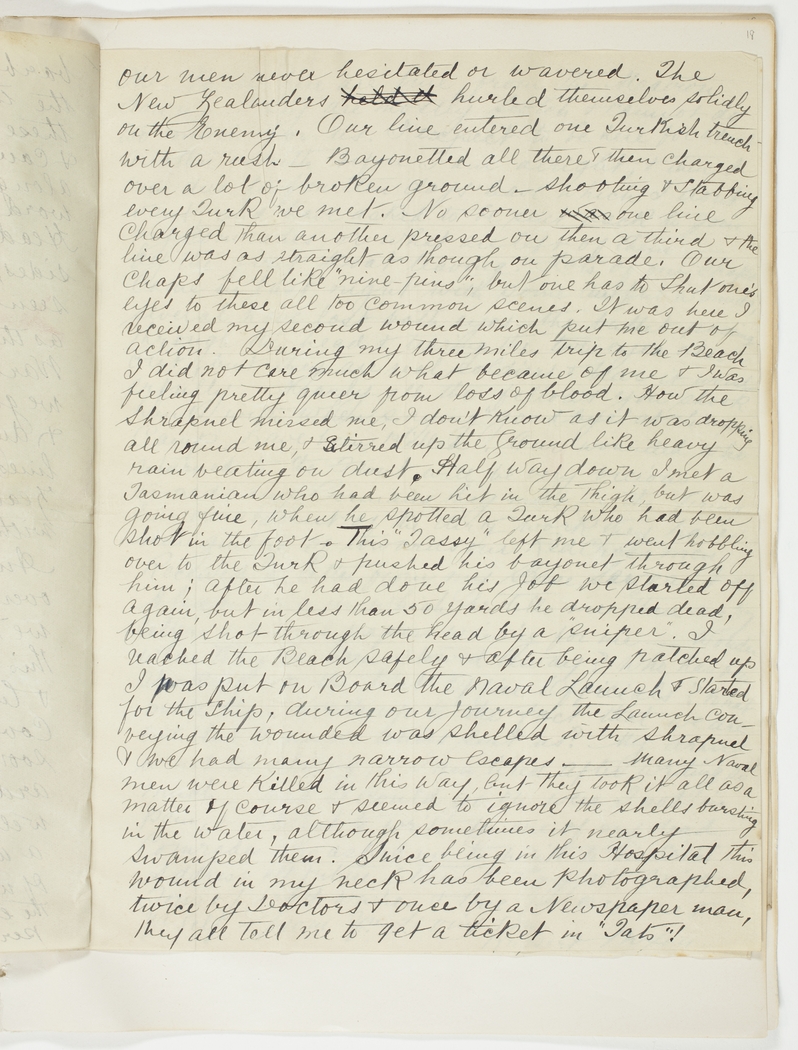 19
our men never hesitated or wavered. The
New Zealanders held it hurled themselves solidly
on the Enemy. Our line entered one Turkish trench
with a rush – Bayonetted all there & then charged
over a lot of broken ground – shooting & Stabbing
every Turk we met. No sooner one line
Charged than another pressed on then a third & the
line was as straight as though on parade. Our
Chaps fell like "nine-pins", but one has to shut one's
eyes to these all too common scenes. It was here I
received my second wound which put me out of
action. During my three miles trip to the Beach
I did not care much what became of me & I was
feeling pretty queer from loss of blood. How the
Shrapnel missed me, I don't know as it was dropping
all round me, & Stirred up the Ground like heavy
rain beating on dust. Half way down I met a
Tasmanian who had been hit in the thigh, but was
going fine, when he spotted a Turk who had been
shot in the foot. This "Tassy" left me & went hobbling
over to the Turk & pushed his bayonet through
him; after he had done his Job we started off
again, but in less than 50 yards he dropped dead,
being shot through the head by a "sniper". I
reached the Beach safely & after being patched up
I was put on Board the Naval Launch & Started
for the Ship, during our Journey the Launch con-
veying the wounded was shelled with shrapnel
& we had many narrow escapes. — Many Naval
men were killed in this way, but they took it all as a
matter of course & seemed to ignore the shells bursting
in the water, although sometimes it nearly
swamped them. Since being in this Hospital this
wound in my neck has been Photographed,
twice by Doctors & once by a Newspaper man,
they all tell me to get a ticket in "Tatts"!